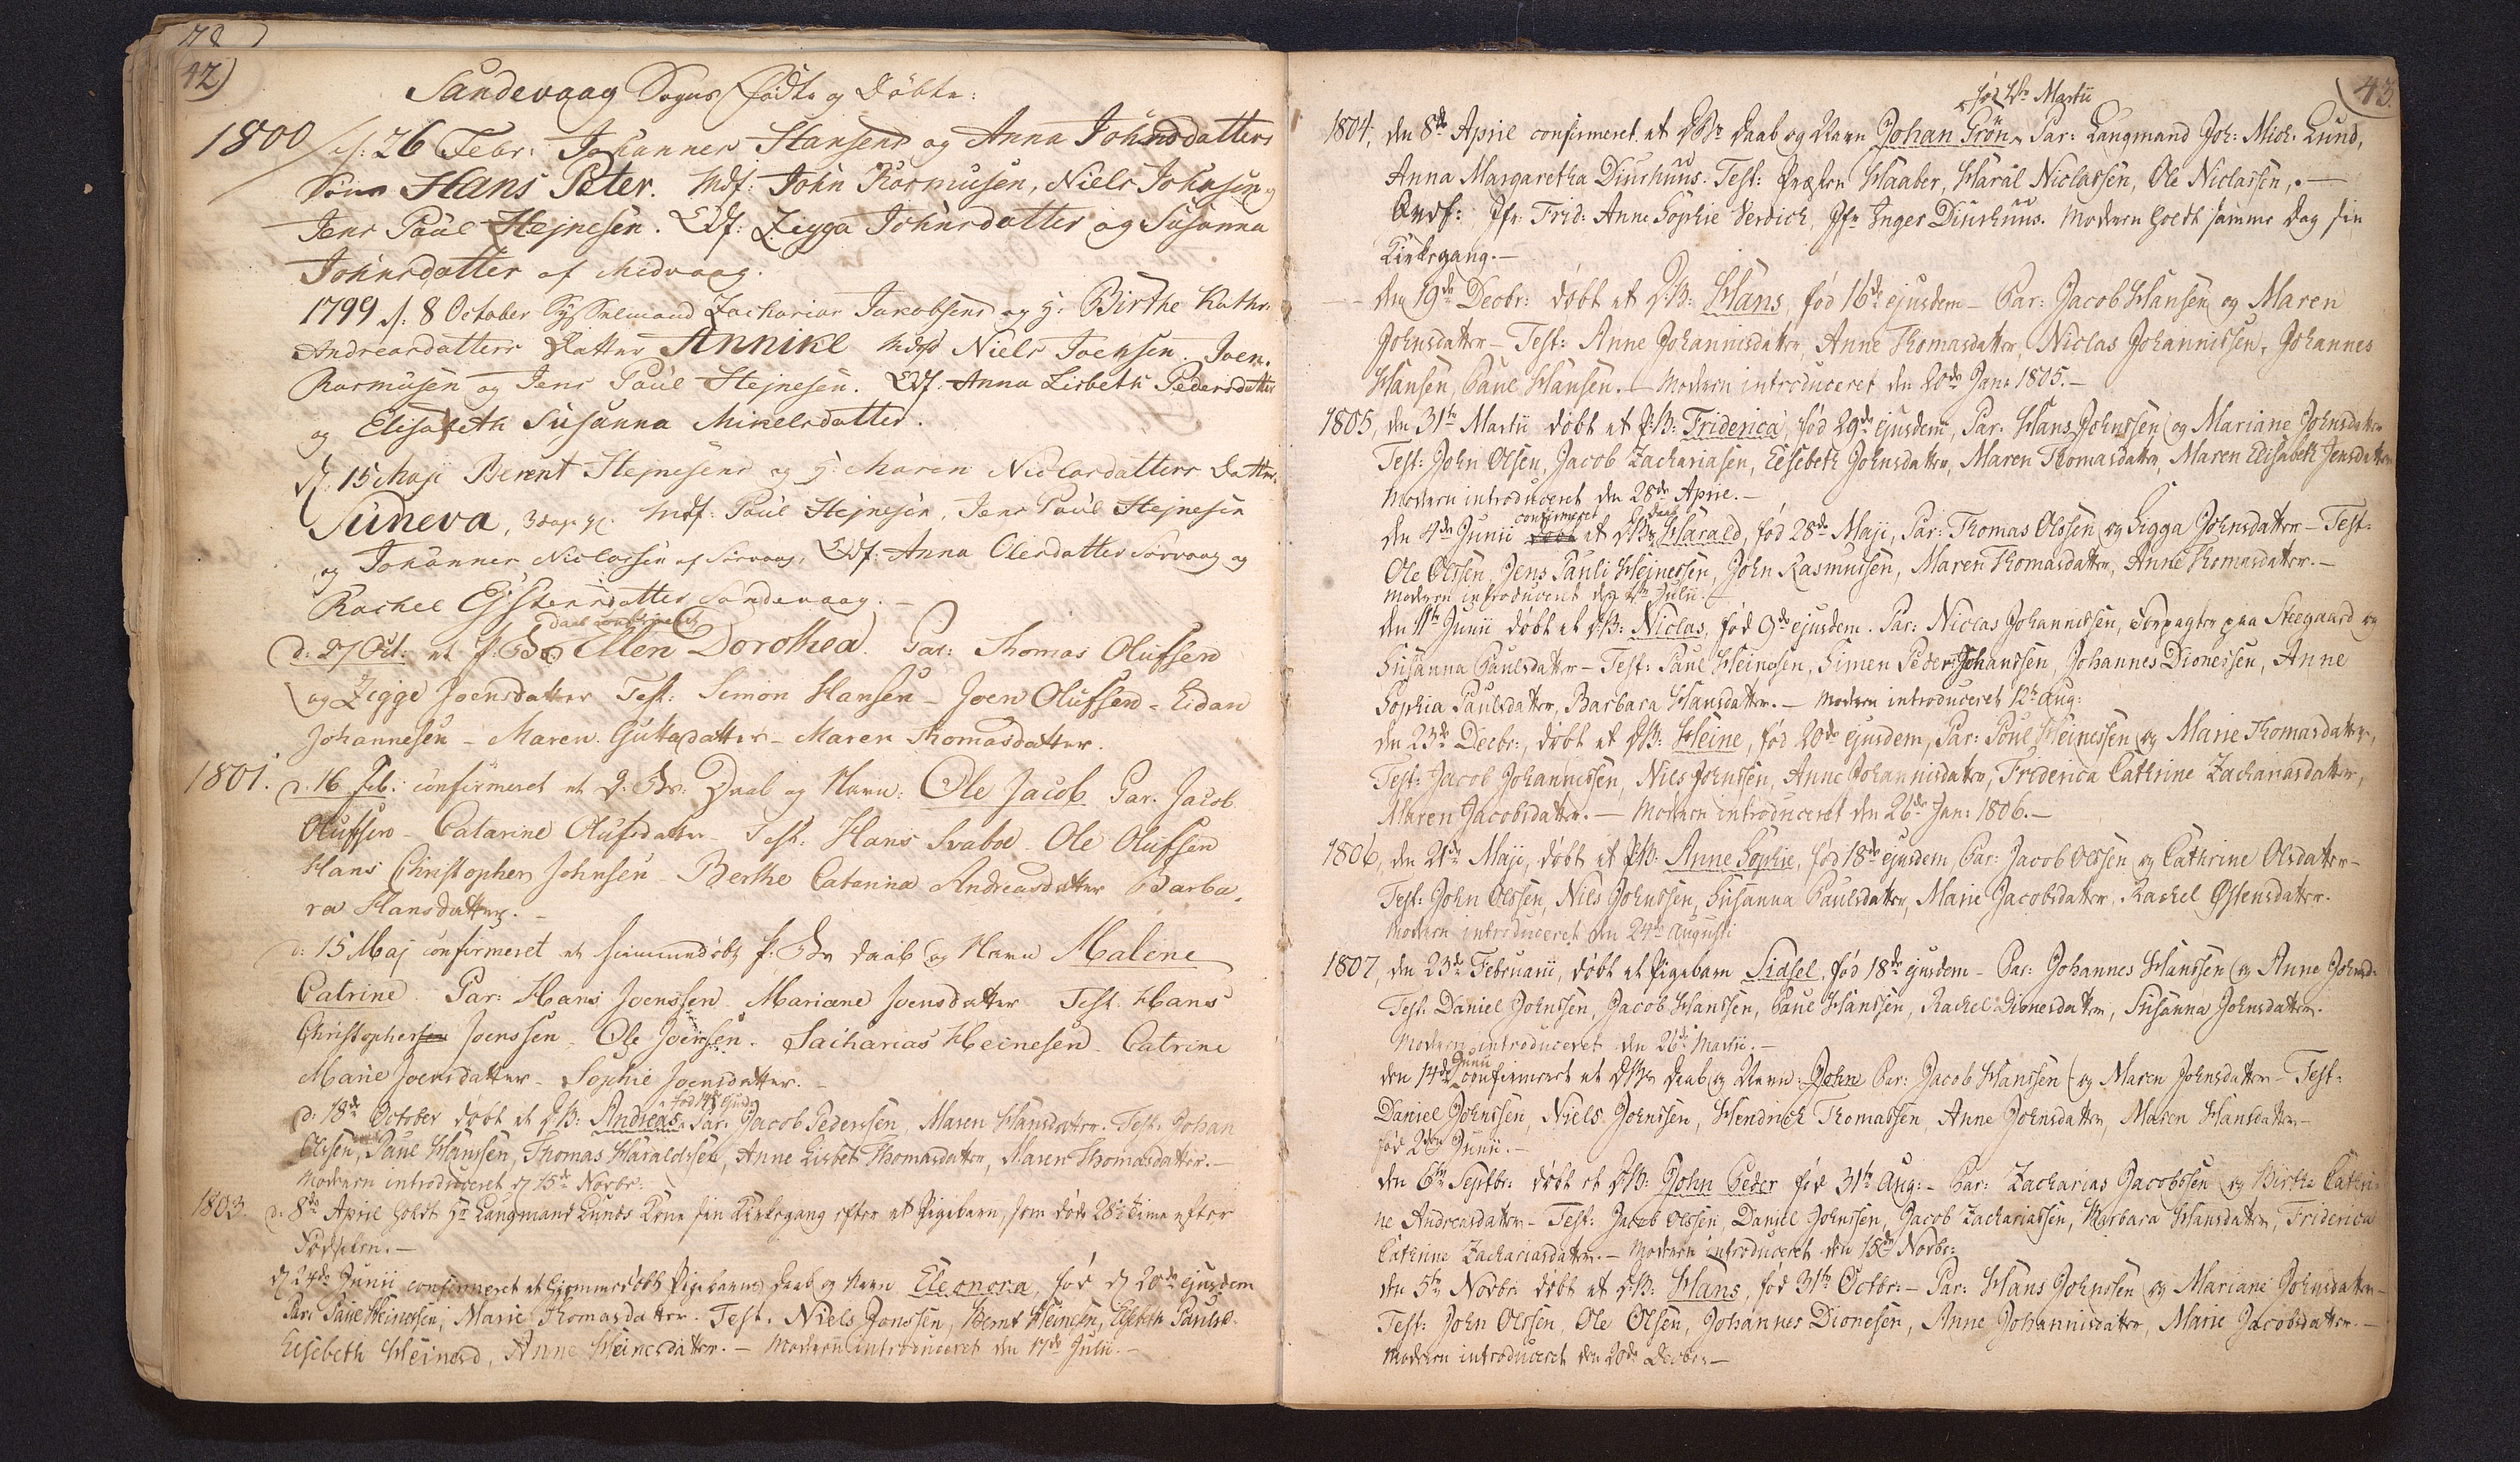 42)
Sandevaag Sogns Fødte og Døbte:
1800 d: 26 Febr: Johannes Hansens og Anna Johnsdatters
Søn Hans Peter. Mdf: John Rasmusen, Niels Johnsen og
Jens Paul Hejnesen. Qdf: Zigga Johnsdatter og Susanna
Johnsdatter af Midvaag.
1799 d: 8 October Sysselmand Zacharias Jacobsens og H: Birthe Kathr:
Andreasdatters Datter Annike Mdf Niels Joensen. Joen
Rasmusen og Jens Paul Hejnesen. Qdf. Anna Lisbeth Pedersdatter
og Elisabeth Susanna Mikelsdatter.
d: 15 Maji Berent Hejnesens og H: Maren Niclasdatters Datter
Suneva, 3 dage gl: Mdf: Paul Hejnesen, Jens Paul Hejnesen
og Johannes Niclassen af Sørvaag, Qdf: Anna Olesdatter Sørvaag og
Rachel Ejstensdatter Sandevaag. -
Daab confirmeret
d: 27 Oct: et p: B: Ellen Dorothea. Par: Thomas Olufsen
og Zigge Joensdatter Test: Simon Hansen - Joen Olufsen - Eidan
Johannesen - Maren Guttadatter - Maren Thomasdatter.
1801. d. 16 Feb: confirmeret et D: B: Daab og Navn: Ole Jacob Par. Jacob
Olufsen - Catarine Olufsdatter - Test. Hans Svaboe - Ole Olufsen
Hans Christopher Johnsen - Berthe Catarina Andreasdatter Barba-
ra Hansdatter. -
d: 15 Maj confirmeret et hiemmedøbt p: B: Daab og Navn Malene
Catrine. Par: Hans Joenssen - Mariane Joensdatter Test. Hans
Christopher Joenssen - Ole Joensen. Sacharias Heinesen - Catrine
Marie Joensdatter - Sophie Joensdatter. -
d: 18de October døbt et D:B: Andreas. Par: Jacob Pederssen, Maren Hansdatter. Test: Johan
Olssen, Paul Hanssen, Thomas Haraldssen, Anne Lisbet Thomasdatter, Maren Thomasdatter. -
Modern introduceret d 15de Novbr:
1803. d: 8de April holdt Hr Laugmand Lunds Kone sin Kirkegang efter et Pigebarn, som døde 28de Time efter
Fødselen. -
d 24de Junii confirmeret et hiemmedøbt Pigebarns Daab og Navn Eleonora, fød d 20de ejusdem
Par: Paul Heinessen, Marie Thomasdatter. Test. Niels Jonssen, Bernt Heinesen, Elsbeth Paulsd.
Elsebeth Heinesd, Anne Heinesdatter. - Modern introduceret den 17de Julii. -
43.
fød 4de Martii
1804, den 8de April confirmeret et D:B: Daab og Navn Johan Grøn, Par: Laugmand Joh: Mich: Lund,
Anna Margaretha Diurhuus. Test: Præsten Haaber, Haral Niclassen, Ole Niclassen, -
Jfr: Frid: Anne Sophie Verdich, Jfr Inger Diurhuus. Modern holdt samme Dag sin
Kirkegang. -
den 19de Decbr: døbt et D:B: Hans, fød 16de ejusdem - Par: Jacob Hansen og Maren
Johnsdatter - Test: Anne Johannisdatter, Anne Thomasdatter, Niclas Johannissen, Johannes
Hansen, Paul Hansen. - Modern introduceret den 20de Jan: 1805. -
1805, den 31te Martii døbt et P:B: Friderica, fød 29de ejusdem, Par: Hans Johnssen og Mariane Johnsdatter
Test: John Olsen, Jacob Zachariasen, Elsebeth Johnsdatter, Maren Thomasdatter, Maren Elisabeth Jensdatter
Modern introduceret den 28de April. -
confirmeret Daab
den 4de Junii døbt et D:B: Harald, fød 28de Maji, Par: Thomas Olssen og Sigga Johnsdatter - Test:
Ole Olssen, Jens Pauli Hejnessen, John Rasmussen, Maren Thomasdatter, Anne Thomasdatter. -
Modern introduceret den Julii. -
den 11te Junii døbt et D:B: Niclas, fød 9de ejusdem. Par: Niclas Johannissen, Forpagter paa Steegaard og
Susanna Paulsdatter - Test: Paul Heinesen, Simen Peder Johanssen, Johannes Dionessen, Anne
Sophia Paulsdatter, Barbara Hansdatter. - Modern introduceret 12te Aug:
den 23de Decbr:, døbt et D:B: Heine, fød 20de ejusdem, Par: Poul Heinessen og Marie Thomasdatter,
Test: Jacob Johannessen, Niels Johnssen, Anne Johannisdatter, Friderica Cathrine Zachariasdatter,
Maren Jacobsdatter. - Modern introduceret den 26de Jan: 1806. -
1806, den 21de Maji, døbt et P:B: Anne Sophie, fød 18de ejusdem, Par: Jacob Olssen og Cathrine Olsdatter -
Test: John Olssen, Niels Johnssen, Susanna Paulsdatter, Marie Jacobsdatter, Rachel Østensdatter.
Modern introduceret den 24de Augusti
1807, den 23de Februarii, døbt et Pigebarn Sidsel, fød 18de ejusdem - Par: Johannes Hanssen og Anne Johnsd:
Test: Daniel Johnssen, Jacob Hanssen, Paul Hanssen, Rachel Dionesdatter, Susanna Johnsdatter.
Modern introduceret den 26de Martii. -
Junii
den 14de confirmeret et D:B: Daab og Navn: John Par: Jacob Hanssen og Maren Johnsdatter - Test:
Daniel Johnssen, Niels Johnssen, Hendrich Thomassen, Anne Johnsdatter, Maren Hansdatter -
fød 2den Junii. -
den 6te Septbr: døbt et D:B: John Peder fød 31te Aug: - Par: Zacharias Jacobsen og Birthe Cathri-
ne Andreasdatter - Test: Jacob Olssen, Daniel Johnssen, Jacob Zachariassen, Barbara Hansdatter, Friderica
Cathrine Zachariasdatter. - Modern introduceret den 15de Novbr:
den 5te Novbr: døbt et D:B: Hans, fød 31te Octbr: - Par: Hans Johnssen og Mariane Johnsdatter -
Test: John Olssen, Ole Olsen, Johannes Dionesen, Anne Johannisdatter, Marie Jacobsdatter. -
Modern introduceret den 20de Decbr: -